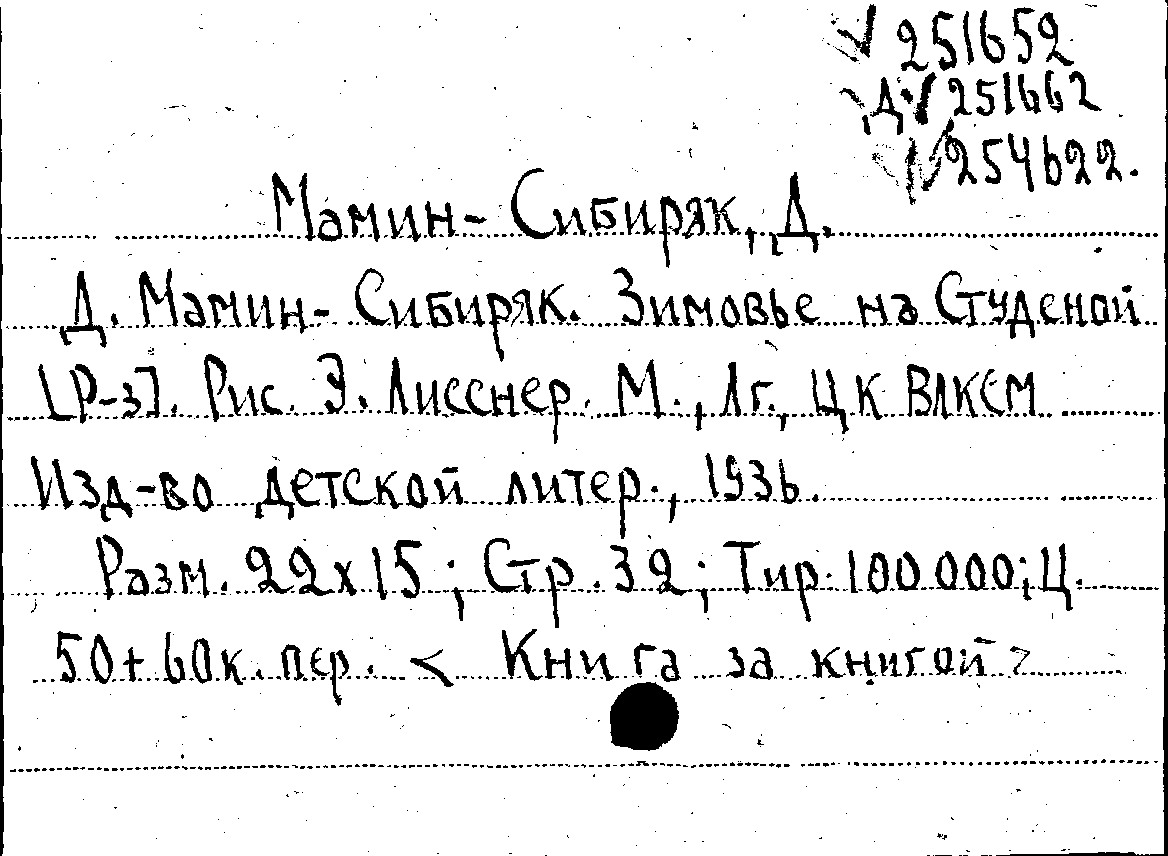 √ 251652
Д. √ 251662
√ 254622.
Мамин-Сибиряк, Д.
Д. Мамин-Сибиряк. Зимовье на Студеной
[Р-з]. Рис. Э. Лисснер. М., Лг., ЦК ВЛКСМ
Изд-во детской литер., 1936.
Разм. 22х15; Стр. 32; Тир. 100000; Ц.
50+60к. пер. < Книга за книгой >